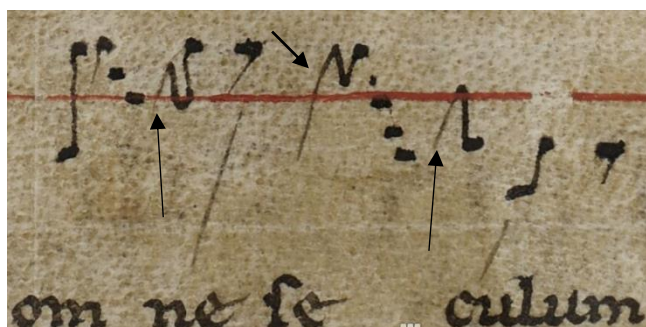 om ne se culum